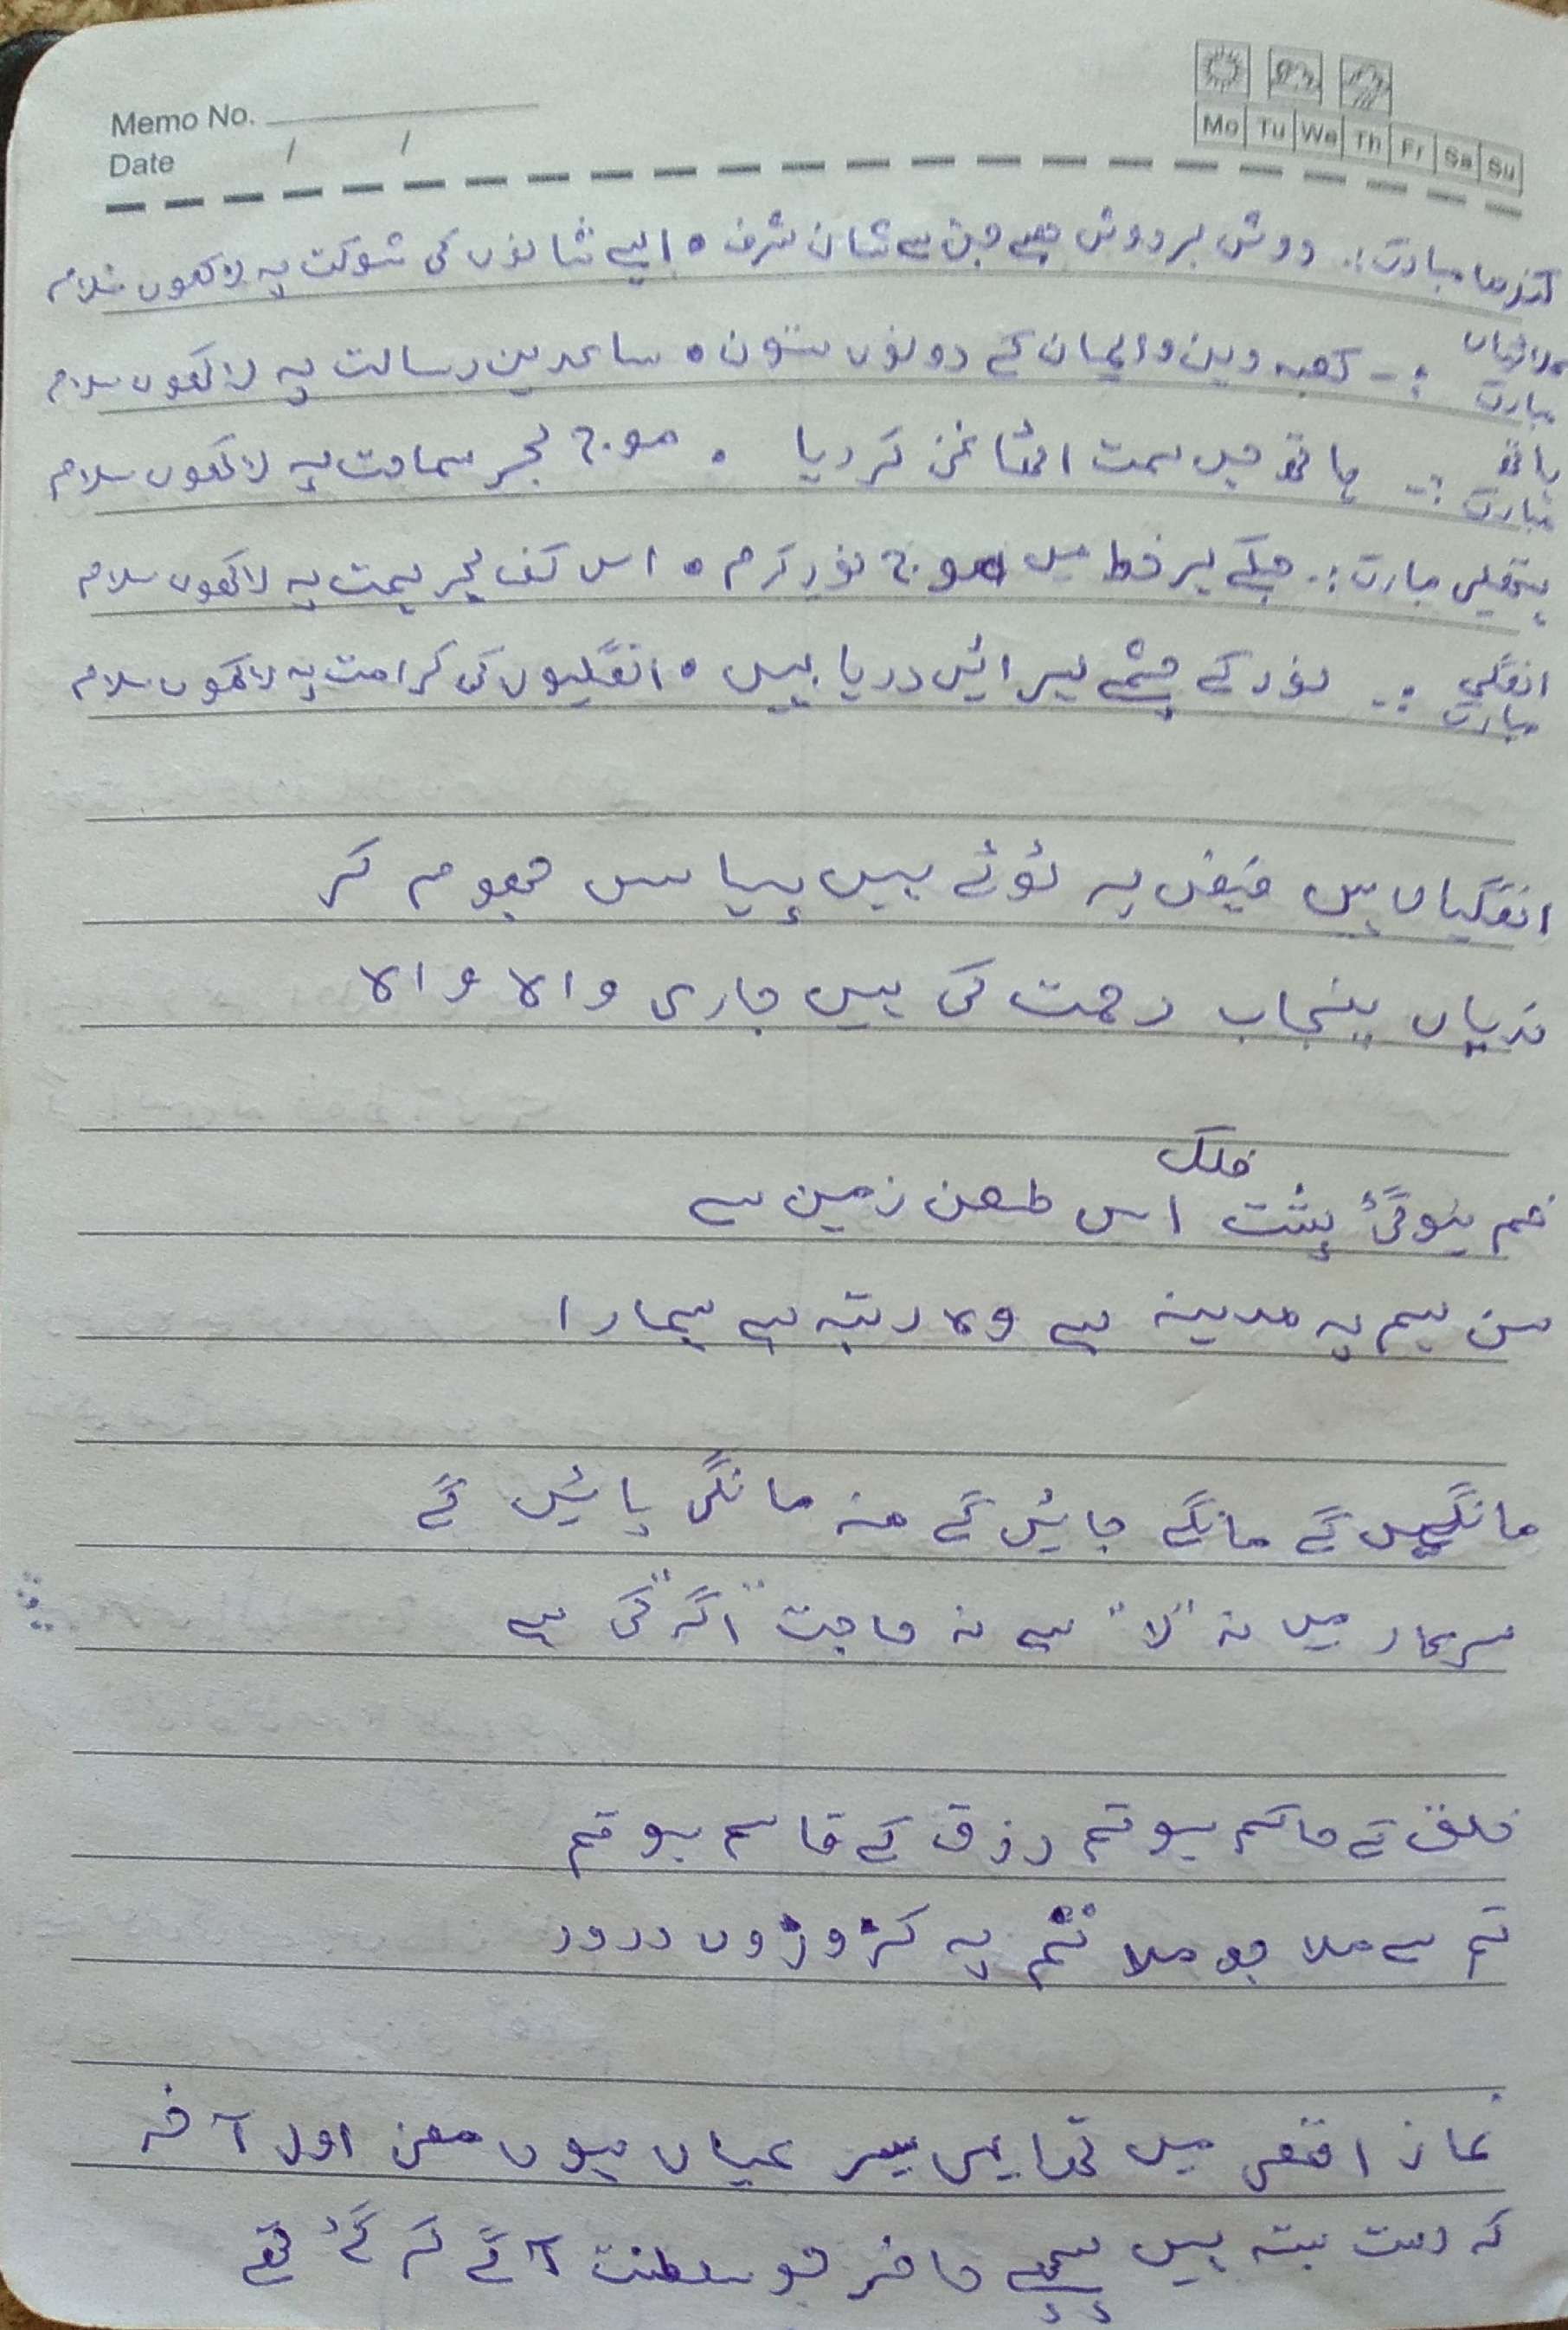 Memo No.
Date / /
Mo Tu We Th Fr Sa Su
کندھا مبارک :. دوش بر دوش ہے جن سے شان شرف ٥ ایسے شانوں کی شوکت پہ لاکھوں سلام
کلائیاں مبارک :- کعبہ دین و ایمان کے دونوں ستون ٥ ساعدین رسالت پہ لاکھوں سلام
ہاتھ مبارک :- ہاتھ جس سمت اٹھا غنی کر دیا ٥ موج بحر سماحت پہ لاکھوں سلام
ہتھیلی مبارک :. جسکے ہر خط میں موج نور کرم ٥ اس کف بحر ہمت پہ لاکھوں سلام
انگلی مبارک :- نور کے چشمے لہرائیں دریا بہیں ٥ انگلیوں کی کرامت پہ لاکھوں سلام
انگلیاں ہیں فیض پہ ٹوٹے ہیں پیاسے جھوم کر
ندیاں پنجاب رحمت کی ہیں جاری واہ واہ
فلک
خم ہوگئ پشت اس طعن زمین سے
سن ہم پہ مدینہ ہے وہ رتبہ ہے ہمارا
مانگیں گے مانگے جائیں گے منہ مانگی پائیں گے
سرکار میں نہ "لا" ہے نہ حاجت "اگر" کی ہے
خلق کے حاکم ہو تم رزق کے قاسم ہو تم
تم سے ملا جو ملا تم پہ کڑوڑوں درود
نماز اقصی میں تھا یہی سر عیاں ہوں معنی اول آخر
کہ دست بستہ ہیں پیچھے حاضر جو سلطنت آگے کر گئے تھے